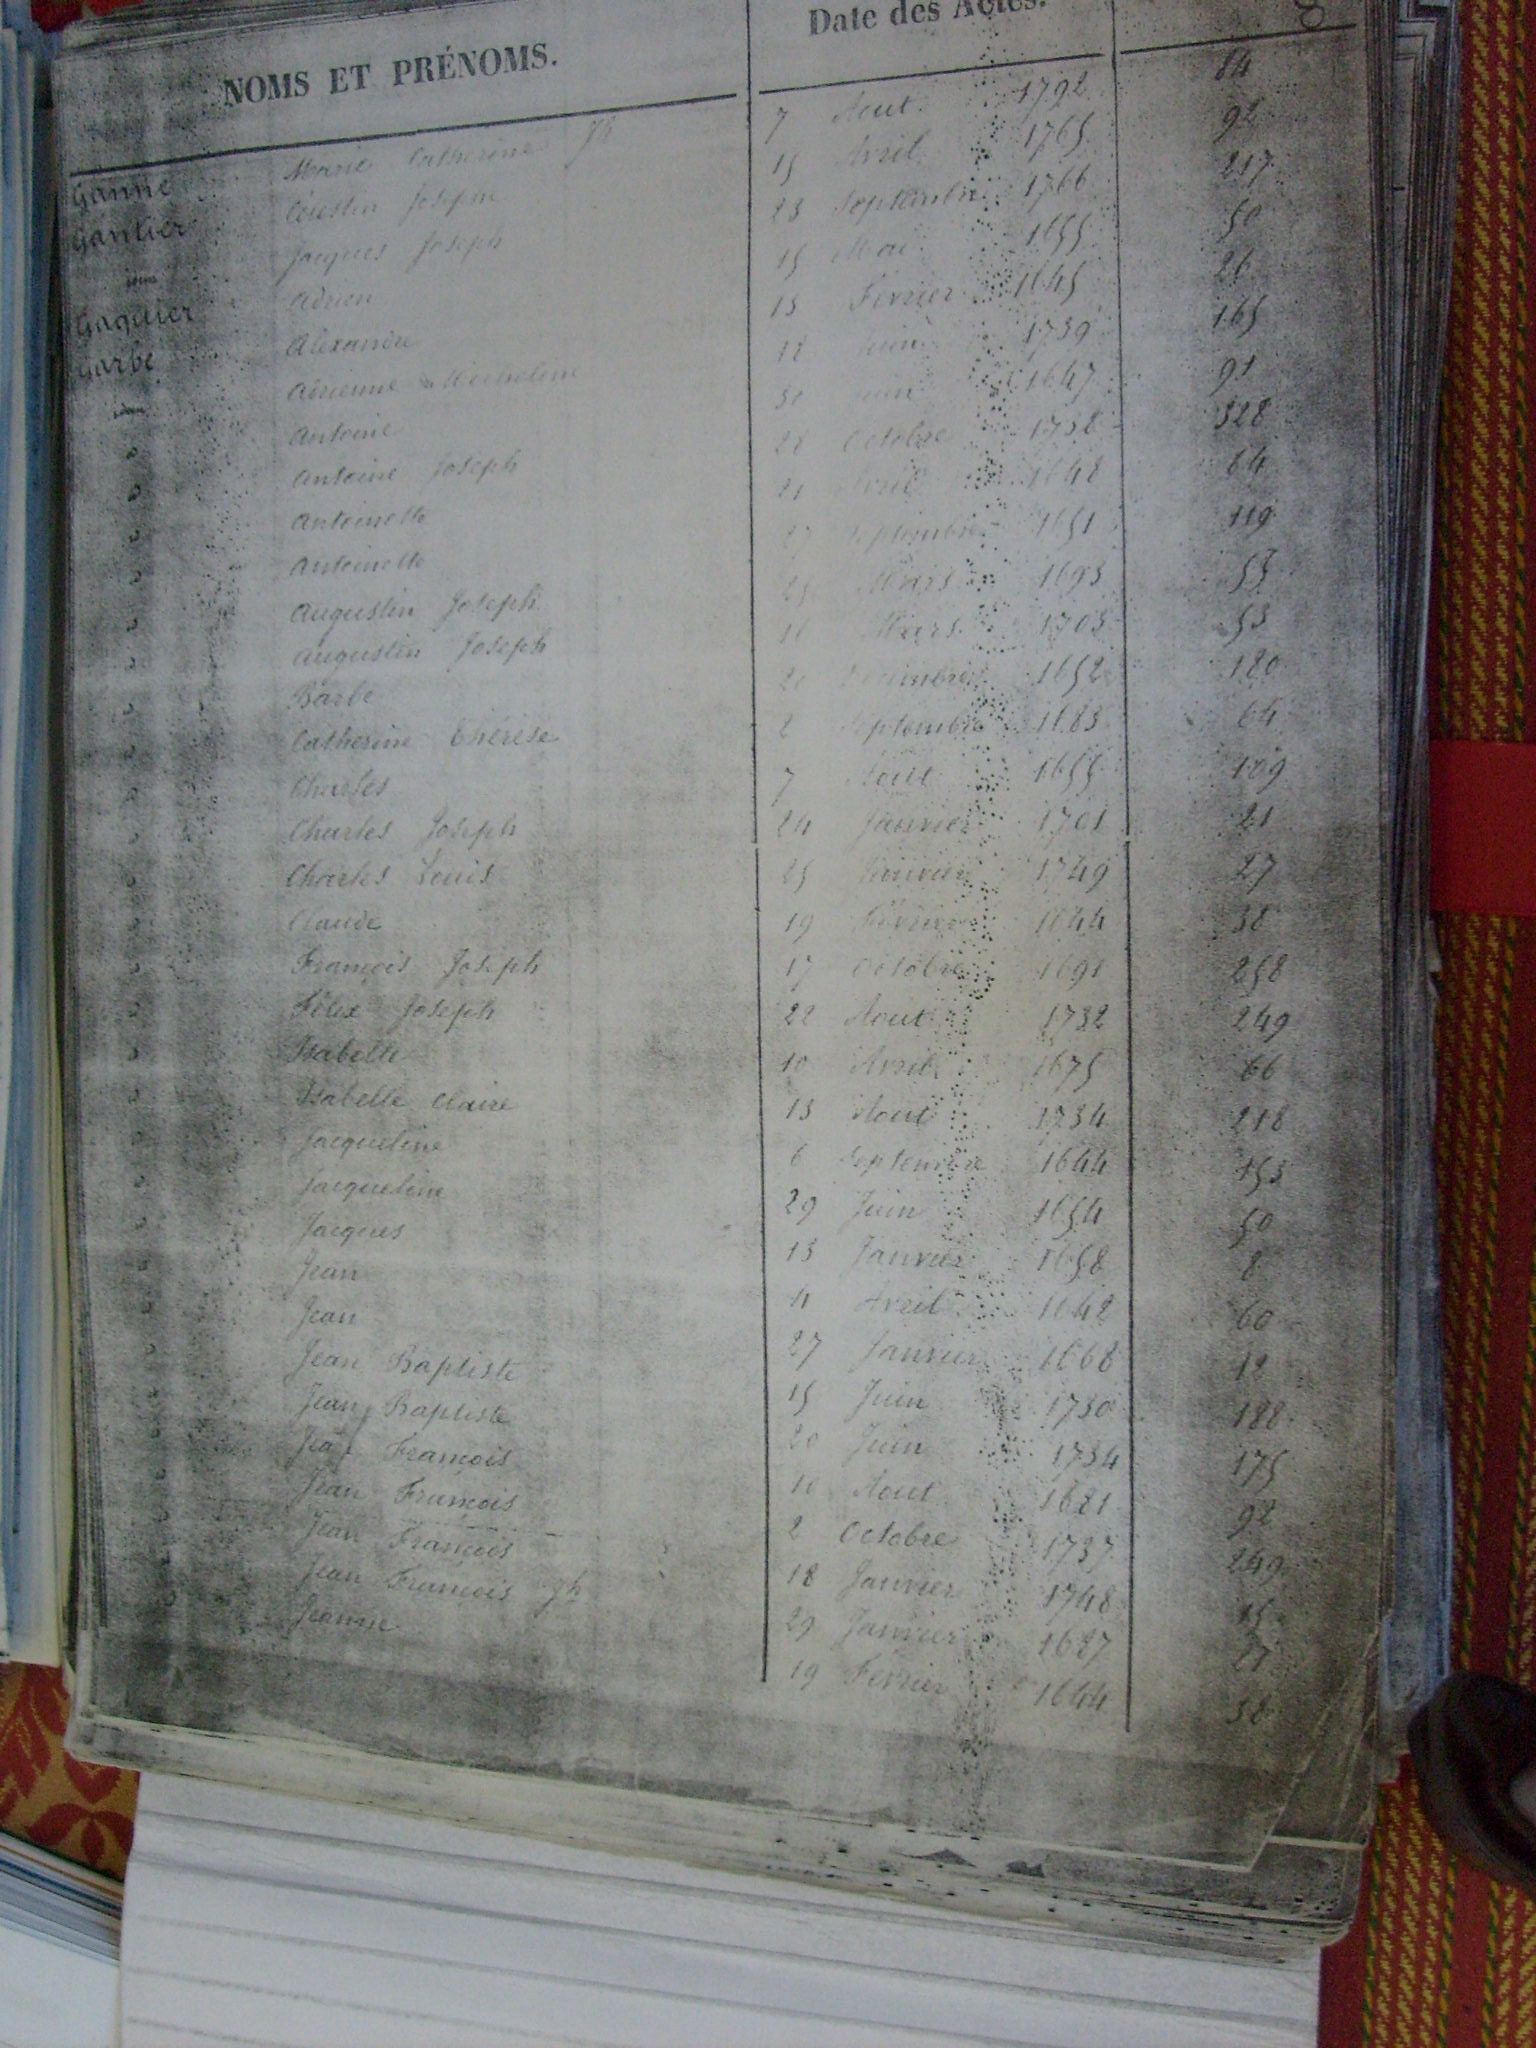 NOMS ET PRÉNOMS. Date des Actes. 8
Ganne Marie Catherine Jh 7 Aout 1792 84
Gantier Célestin Joseph 15 Avril 1765 92
idem Jacques Joseph 23 Septembre 1766 217
Gaquier Adrien 15 Mai 1655 50
Garbe Alexandre 13 Février 1645 26
idem Adrienne Micheline 18 Juin 1739 165
" Antoine 31 1647 91
" Antoine Joseph 22 Octobre 1738 328
" Antoinette 21 Avril 1648 64
" Antoinette 27 Septembre 1651 119
" Augustin Joseph 25 Mars 1693 53
" Augustin Joseph 16 Mars 1703 53
" Barbe 20 Décembre 1652 180
" Catherine Thérèse 2 Septembre 1683 64
" Charles 7 Août 1655 109
" Charles Joseph 24 Janvier 1701 21
" Charles Louis 25 Janvier 1749 27
" Claude 19 Février 1644 38
" François Joseph 17 Octobre 1691 258
" Félix Joseph 22 Aout 1732 249
" Isabelle 10 Avril 1675 66
" Isabelle Claire 13 Aout 1734 218
" Jacqueline 6 Septembre 1644 153
" Jacqueline 29 Juin 1654 50
" Jacques 13 Janvier 1658 8
" Jean 4 Avril 1642 60
" Jean 27 Janvier 1668 12
" Jean Baptiste 15 Juin 1730 188
" Jean Baptiste 20 Juin 1734 175
" Jean François 10 Aout 1681 92
" Jean François 2 Octobre 1737 249
" Jean François 18 Janvier 1748 15
" Jean François Jh 29 Janvier 1687 21
" Jeanne 19 Février 1644 38